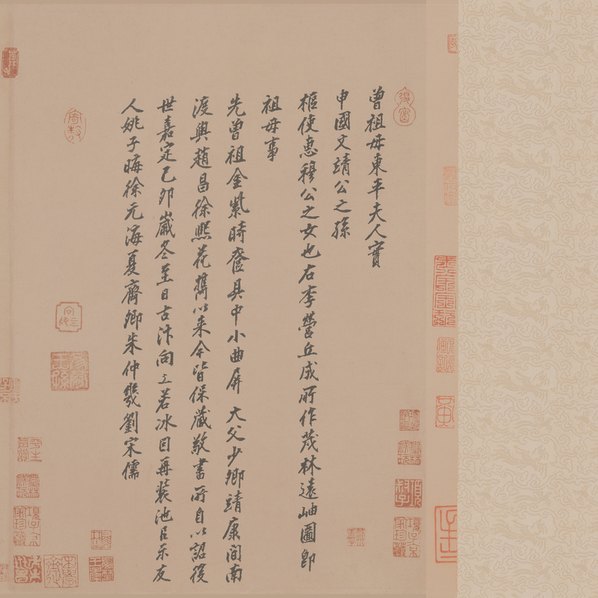 曾祖母東平夫人實
申國文靖公之孫
樞使惠穆公之女也右李營丘成所作茂林遠岫圖即
祖母事
先曾祖金紫時奩具中小曲屏 大父少卿靖康間南
渡與趙昌徐熙花攜以來今皆保藏敬書所自以詔後
世嘉定己卯歲冬至日古汴向若冰因再裝池㠯示友
人姚子晦徐元海夏齊卿朱仲幾劉宋儒